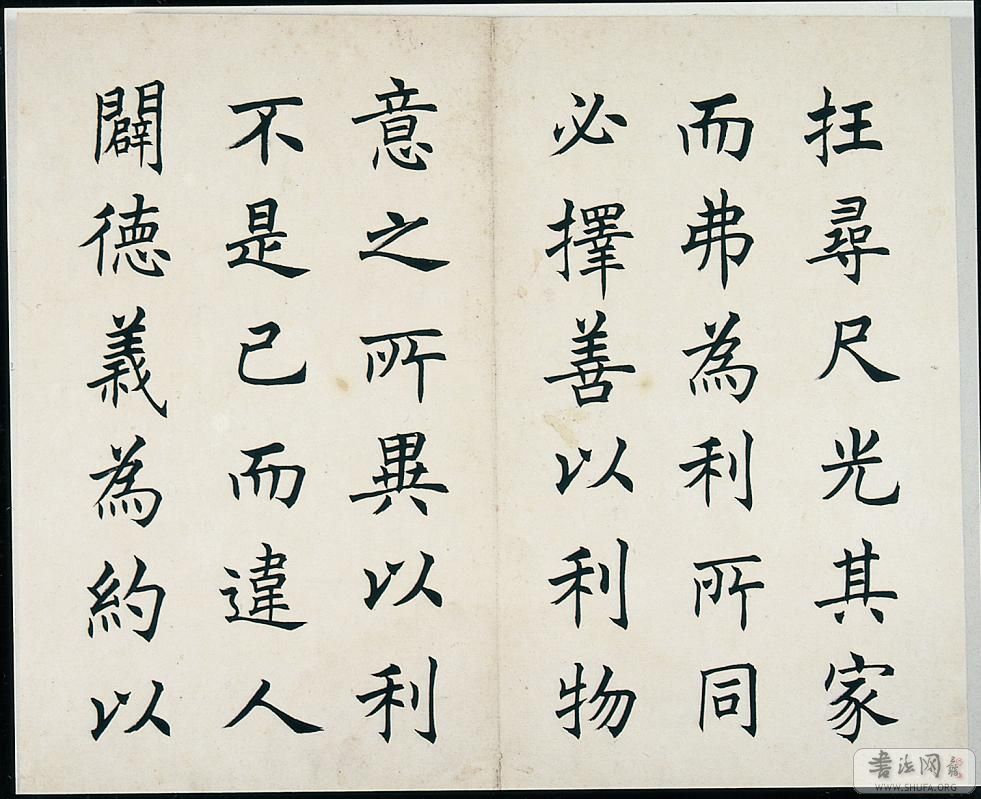 抂尋尺光其家
而弗為利所同
必擇善以利物
意之所異以利
不是己而違人
闢德義為約以
书法网
WWW.SHUFA.ORG